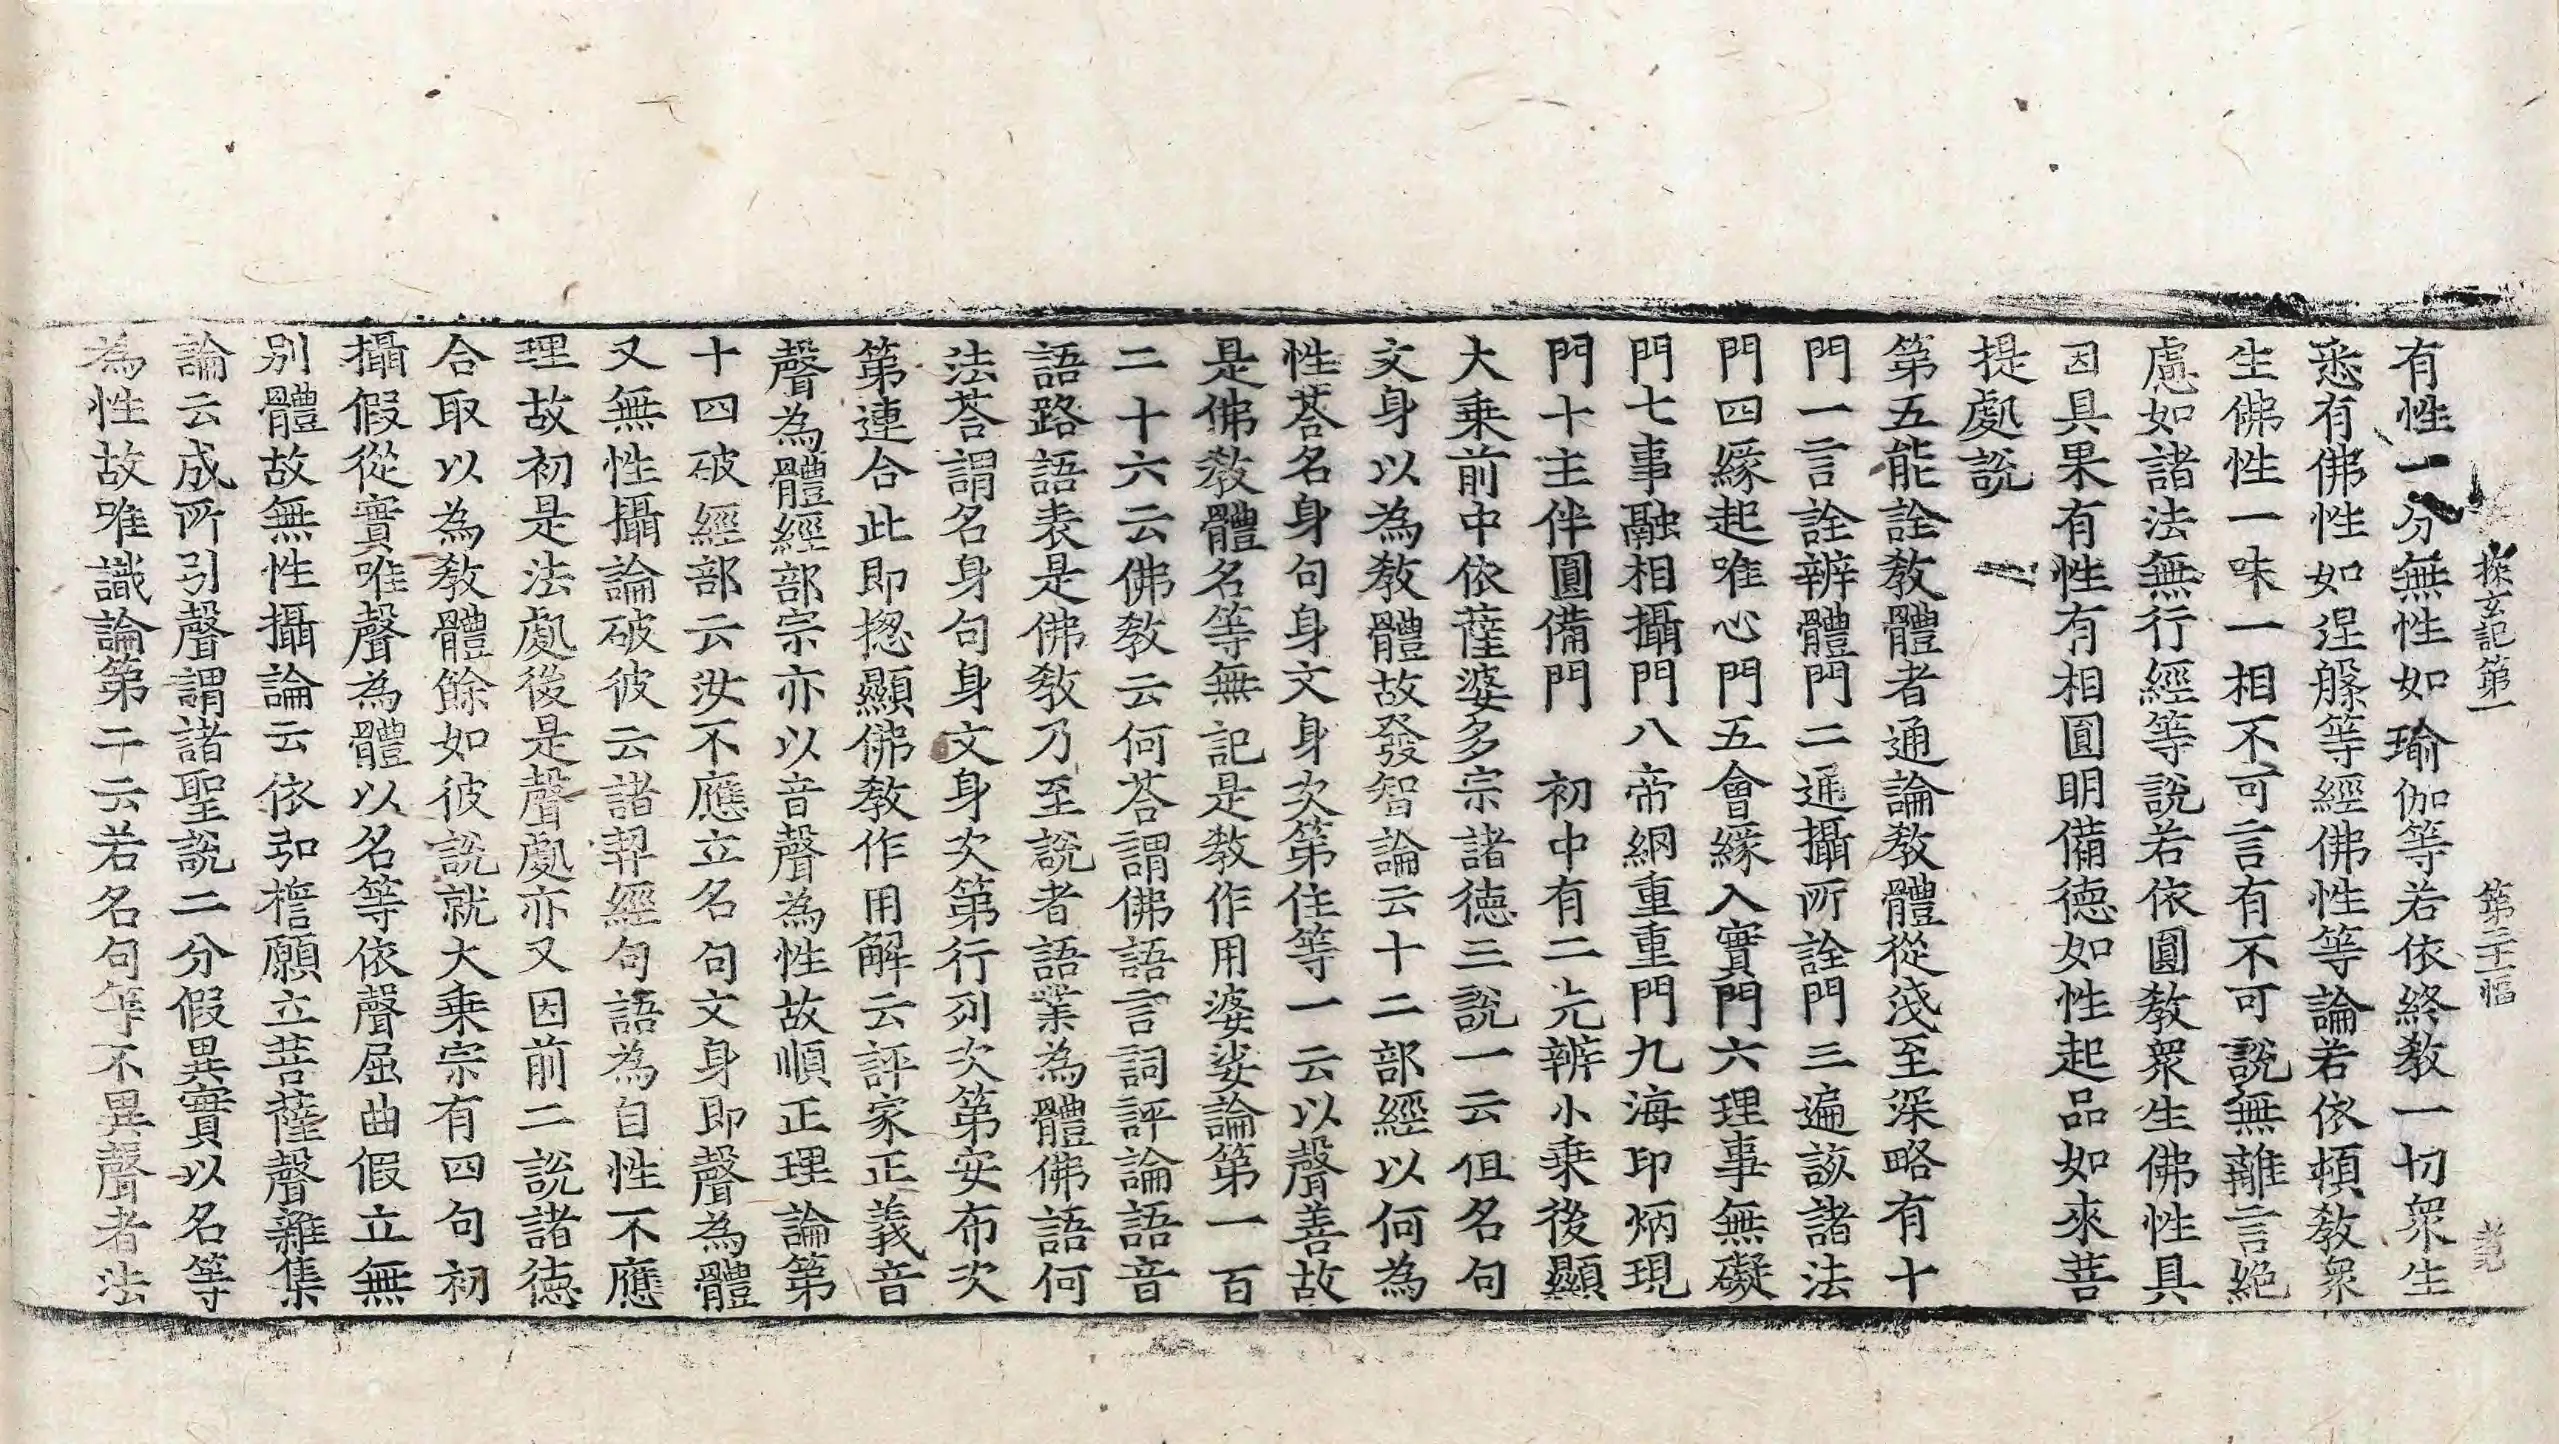 探玄記第一 第二十二幅
有性一分無性如瑜伽等若依終教一切衆生
悉有佛性如涅槃等經佛性等論若依頓教衆
生佛性一味一相不可言有不可說無離言絕
慮如諸法無行經等說若依圓教衆生佛性具
因具果有性有相圓明備德如性起品如來菩
提處說
第五能詮教體者通論教體從淺至深略有十
門一言詮辨體門二通攝所詮門三遍該諸法
門四緣起唯心門五會緣入實門六理事無礙
門七事融相攝門八帝網重重門九海印炳現
門十主伴圓備門 初中有二先辨小乘後顯
大乘前中依薩婆多宗諸德三說一云但名句
文身以為教體故發智論云十二部經以何為
性荅名身句身文身次第住等一云以聲善故
是佛教體名等無記是教作用婆娑論第一百
二十六云佛教云何荅謂佛語言詞評論語音
語路語表是佛教乃至說者語業為體佛語何
法荅謂名身句身文身次第行列次第安布次
第連合此即揔顯佛教作用解云評家正義音
聲為體經部宗亦以音聲為性故順正理論第
十四破經部云汝不應立名句文身即聲為體
又無性攝論破彼云諸契經句語為自性不應
理故初是法處後是聲處亦又因前二說諸德
合取以為教體餘如彼說就大乘宗有四句初
攝假從實唯聲為體以名等依聲屈曲假立無
別體故無性攝論云依弘擔願立菩薩聲雜集
論云成所引聲謂諸聖說二分假異實以名等
為性故唯識論第二云若名句等不異聲者法